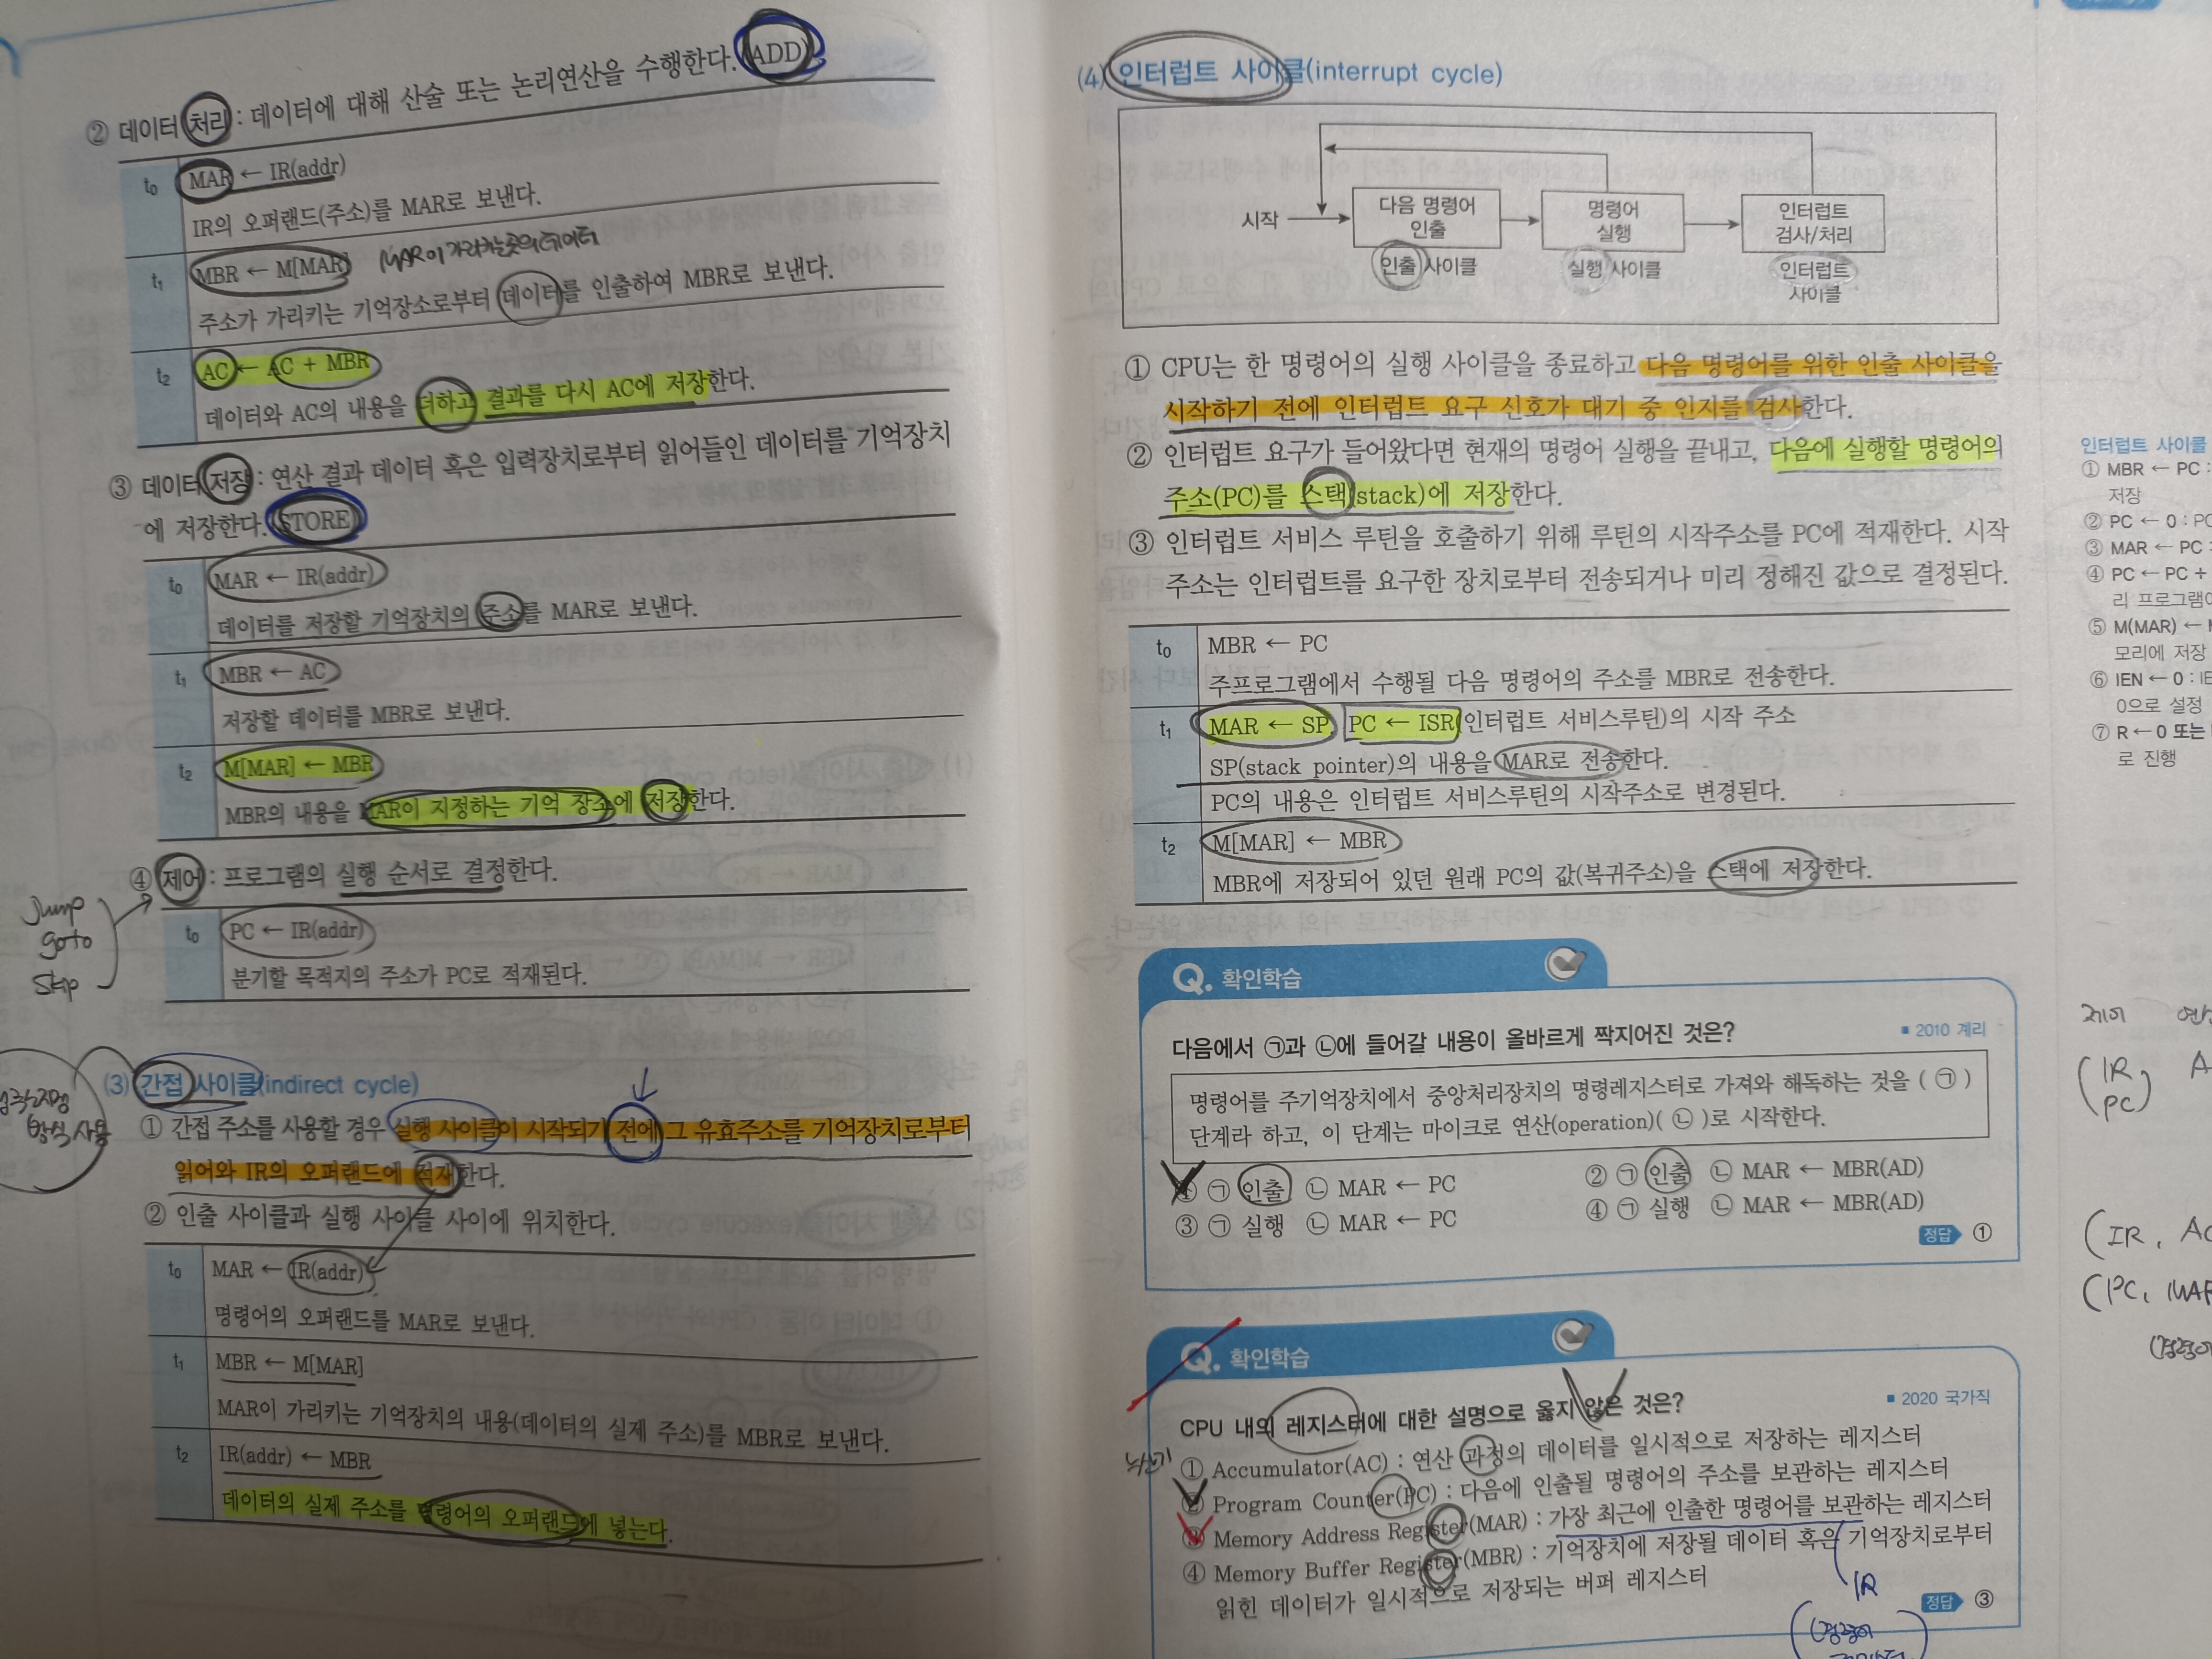 ② 데이터 처리 : 데이터에 대해 산술 또는 논리연산을 수행한다. (ADD)
t₀ MAR ← IR(addr)
IR의 오퍼랜드(주소)를 MAR로 보낸다.
t₁ MBR ← M[MAR] MAR이 가리키는 곳의 데이터
주소가 가리키는 기억장소로부터 데이터를 인출하여 MBR로 보낸다.
t₂ AC ← AC + MBR
데이터와 AC의 내용을 더하고 결과를 다시 AC에 저장한다.
③ 데이터 저장 : 연산 결과 데이터 혹은 입력장치로부터 읽어들인 데이터를 기억장치
에 저장한다. (STORE)
t₀ MAR ← IR(addr)
데이터를 저장할 기억장치의 주소를 MAR로 보낸다.
t₁ MBR ← AC
저장할 데이터를 MBR로 보낸다.
t₂ M[MAR] ← MBR
MBR의 내용을 MAR이 지정하는 기억 장소에 저장한다.
④ 제어 : 프로그램의 실행 순서로 결정한다.
Jump
goto
skip
t₀ PC ← IR(addr)
분기할 목적지의 주소가 PC로 적재된다.
(3) 간접 사이클(indirect cycle)
방식 사용
① 간접 주소를 사용할 경우 실행 사이클이 시작되기 전에 그 유효주소를 기억장치로부터
읽어와 IR의 오퍼랜드에 적재한다.
② 인출 사이클과 실행 사이클 사이에 위치한다.
t₀ MAR ← IR(addr)
명령어의 오퍼랜드를 MAR로 보낸다.
t₁ MBR ← M[MAR]
MAR이 가리키는 기억장치의 내용(데이터의 실제 주소)를 MBR로 보낸다.
t₂ IR(addr) ← MBR
데이터의 실제 주소를 명령어의 오퍼랜드에 넣는다.
(4) 인터럽트 사이클(interrupt cycle)
시작
다음 명령어
인출
명령어
실행
인터럽트
검사/처리
인출 사이클
실행 사이클
인터럽트
사이클
① CPU는 한 명령어의 실행 사이클을 종료하고 다음 명령어를 위한 인출 사이클을
시작하기 전에 인터럽트 요구 신호가 대기 중 인지를 검사한다.
② 인터럽트 요구가 들어왔다면 현재의 명령어 실행을 끝내고, 다음에 실행할 명령어의
주소(PC)를 스택(stack)에 저장한다.
③ 인터럽트 서비스 루틴을 호출하기 위해 루틴의 시작주소를 PC에 적재한다. 시작
주소는 인터럽트를 요구한 장치로부터 전송되거나 미리 정해진 값으로 결정된다.
t₀ MBR ← PC
주프로그램에서 수행될 다음 명령어의 주소를 MBR로 전송한다.
t₁ MAR ← SP, PC ← ISR(인터럽트 서비스루틴)의 시작 주소
SP(stack pointer)의 내용을 MAR로 전송한다.
PC의 내용은 인터럽트 서비스루틴의 시작주소로 변경된다.
t₂ M[MAR] ← MBR
MBR에 저장되어 있던 원래 PC의 값(복귀주소)을 스택에 저장한다.
Q. 확인학습
다음에서 ㉠과 ㉡에 들어갈 내용이 올바르게 짝지어진 것은?
■ 2010 계리
명령어를 주기억장치에서 중앙처리장치의 명령레지스터로 가져와 해독하는 것을 ( ㉠ )
단계라 하고, 이 단계는 마이크로 연산(operation)( ㉡ )로 시작한다.
① ㉠ 인출 ㉡ MAR ← PC
② ㉠ 인출 ㉡ MAR ← MBR(AD)
③ ㉠ 실행 ㉡ MAR ← PC
④ ㉠ 실행 ㉡ MAR ← MBR(AD)
정답 ①
Q. 확인학습
CPU 내의 레지스터에 대한 설명으로 옳지 않은 것은?
■ 2020 국가직
① Accumulator(AC) : 연산 과정의 데이터를 일시적으로 저장하는 레지스터
② Program Counter(PC) : 다음에 인출될 명령어의 주소를 보관하는 레지스터
③ Memory Address Register(MAR) : 가장 최근에 인출한 명령어를 보관하는 레지스터
④ Memory Buffer Register(MBR) : 기억장치에 저장될 데이터 혹은 기억장치로부터
읽힌 데이터가 일시적으로 저장되는 버퍼 레지스터
IR
정답 ③
(명령어
인터럽트 사이클
① MBR ← PC :
저장
② PC ← 0 : PC
③ MAR ← PC :
④ PC ← PC +
리 프로그램
⑤ M(MAR) ←
모리에 저장
⑥ IEN ← 0 :
0으로 설정
⑦ R ← 0 또는
로 진행
제어
(IR
PC)
(IR, AC
(PC, MAR